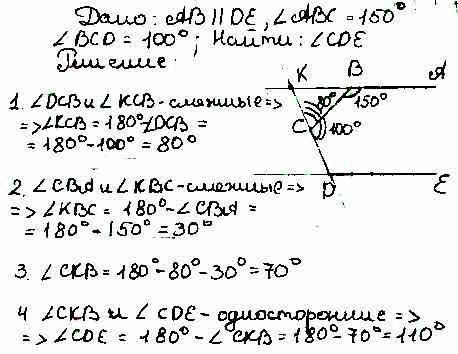 Дано: AB || DE, ∠ABC = 150°
∠BCD = 100°; Найти: ∠CDE
Решение
K B A
1. ∠DCB и ∠KCB - смежные =>
80° 150°
=> ∠KCB = 180°-∠DCB =
C 100°
= 180°-100° = 80°
D E
2. ∠CBA и ∠KBC - смежные =>
=> ∠KBC = 180° - ∠CBA =
= 180° - 150° = 30°
3. ∠CKB = 180° - 80° - 30° = 70°
4. ∠CKB и ∠CDE - односторонние =>
=> ∠CDE = 180° - ∠CKB = 180° - 70° = 110°